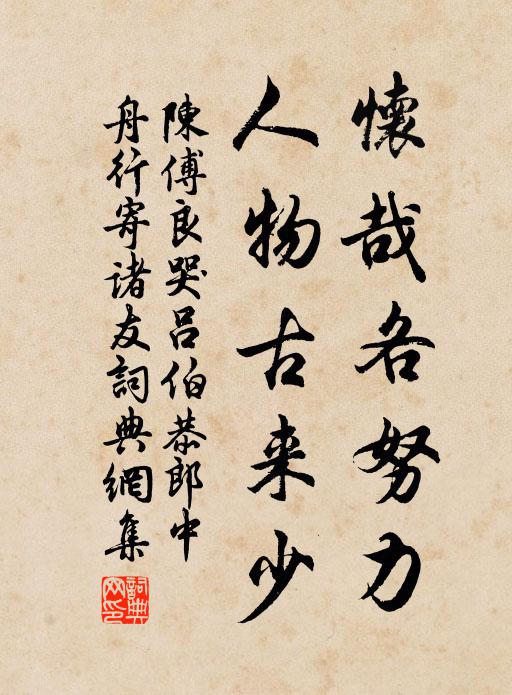 懷哉各努力
人物古来少
陳傅良哭吕伯恭郎中
舟行寄诸友詞典網集
詞典网印